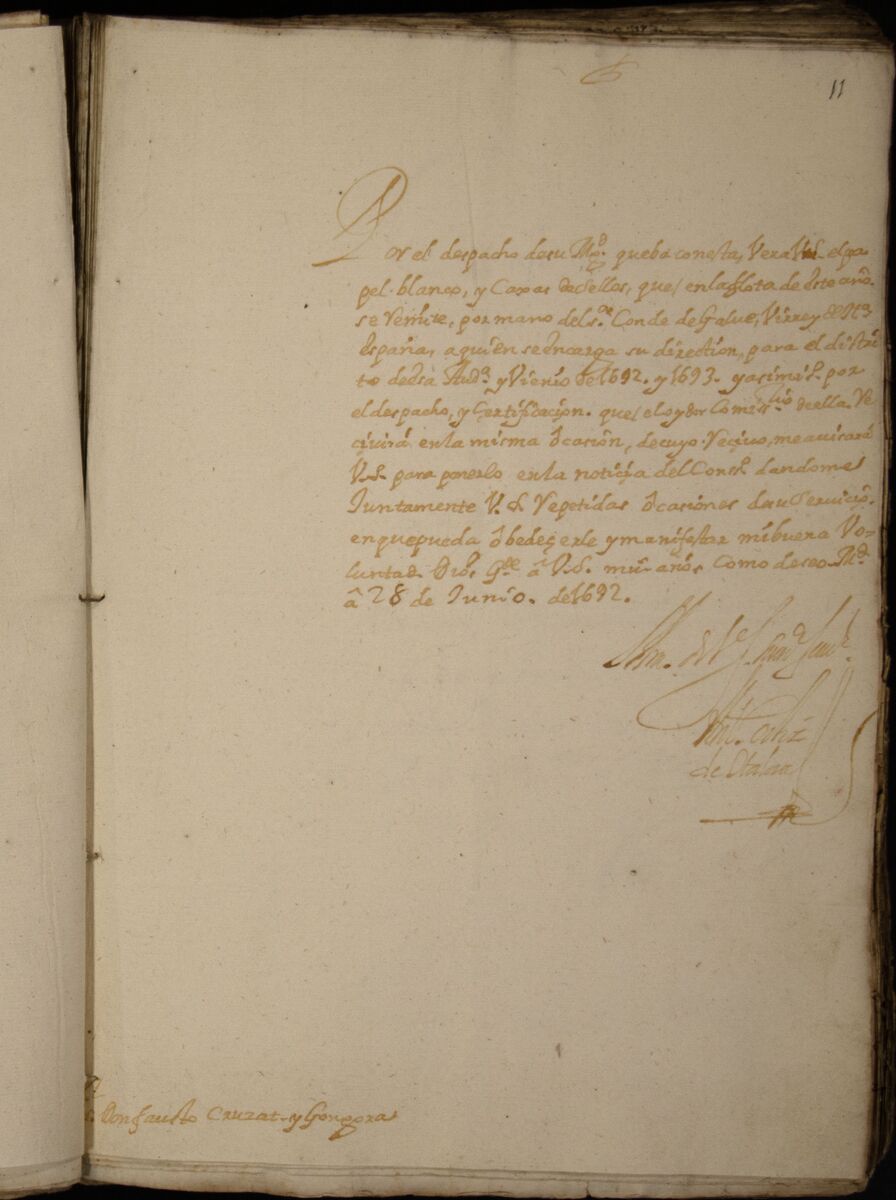 11
Por el despacho desu Mgd. queba conesta, Vera VS. elpa
pel. blanco, y Caxas deSellos, que, enlaflota de este año.
se Vemite, pormano del s.or Conde deGalue, Virrey de Na
españa, aquien seencarga su direction, para el distri
to desa Aud.a y Vienio de 1692. y 1693. yasimis.o por
eldespacho, y Certificacion. que, eloydor Comis.rio deella. Ve
civirá enla misma ôcasion, decuyo. Veçivo, meavisará
V.S. para ponerlo enla noticia del Cons.o dandome
Juntamente V.S. Vepetidas ôcasiones desu servicio.
enquepueda ôbedeçerle ymanifestar mibuena Vo-
luntad. Dios Gde. â V.S. mu.s años como deseo. Md.
â 28 de Junio. de 1692.
de Otalora
Don fausto Cruzat. y Gongora